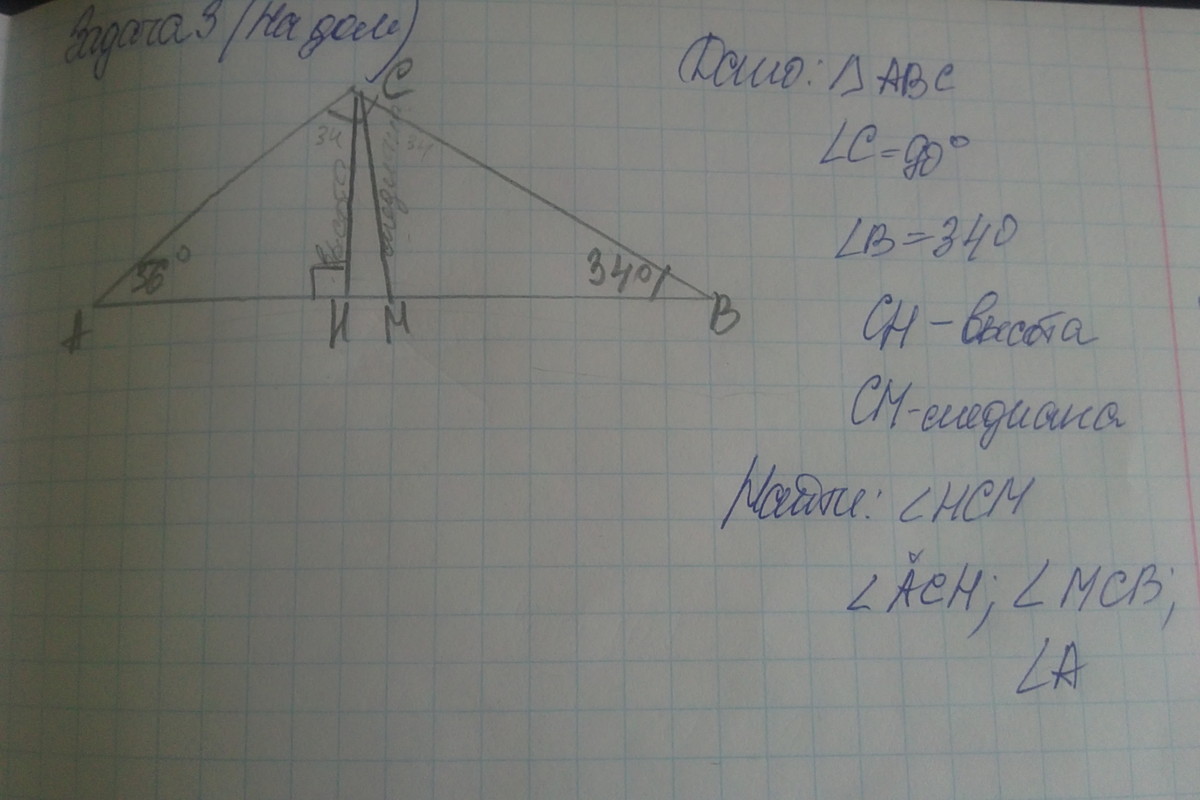 Задача 3 (На дом)
C
34
34
высота
медиана
56°
34°
A
H
M
B
Дано: Δ ABC
∠C=90°
∠B=34°
CH – высота
CM-медиана
Найти: ∠HCM
∠ACH; ∠MCB;
∠A